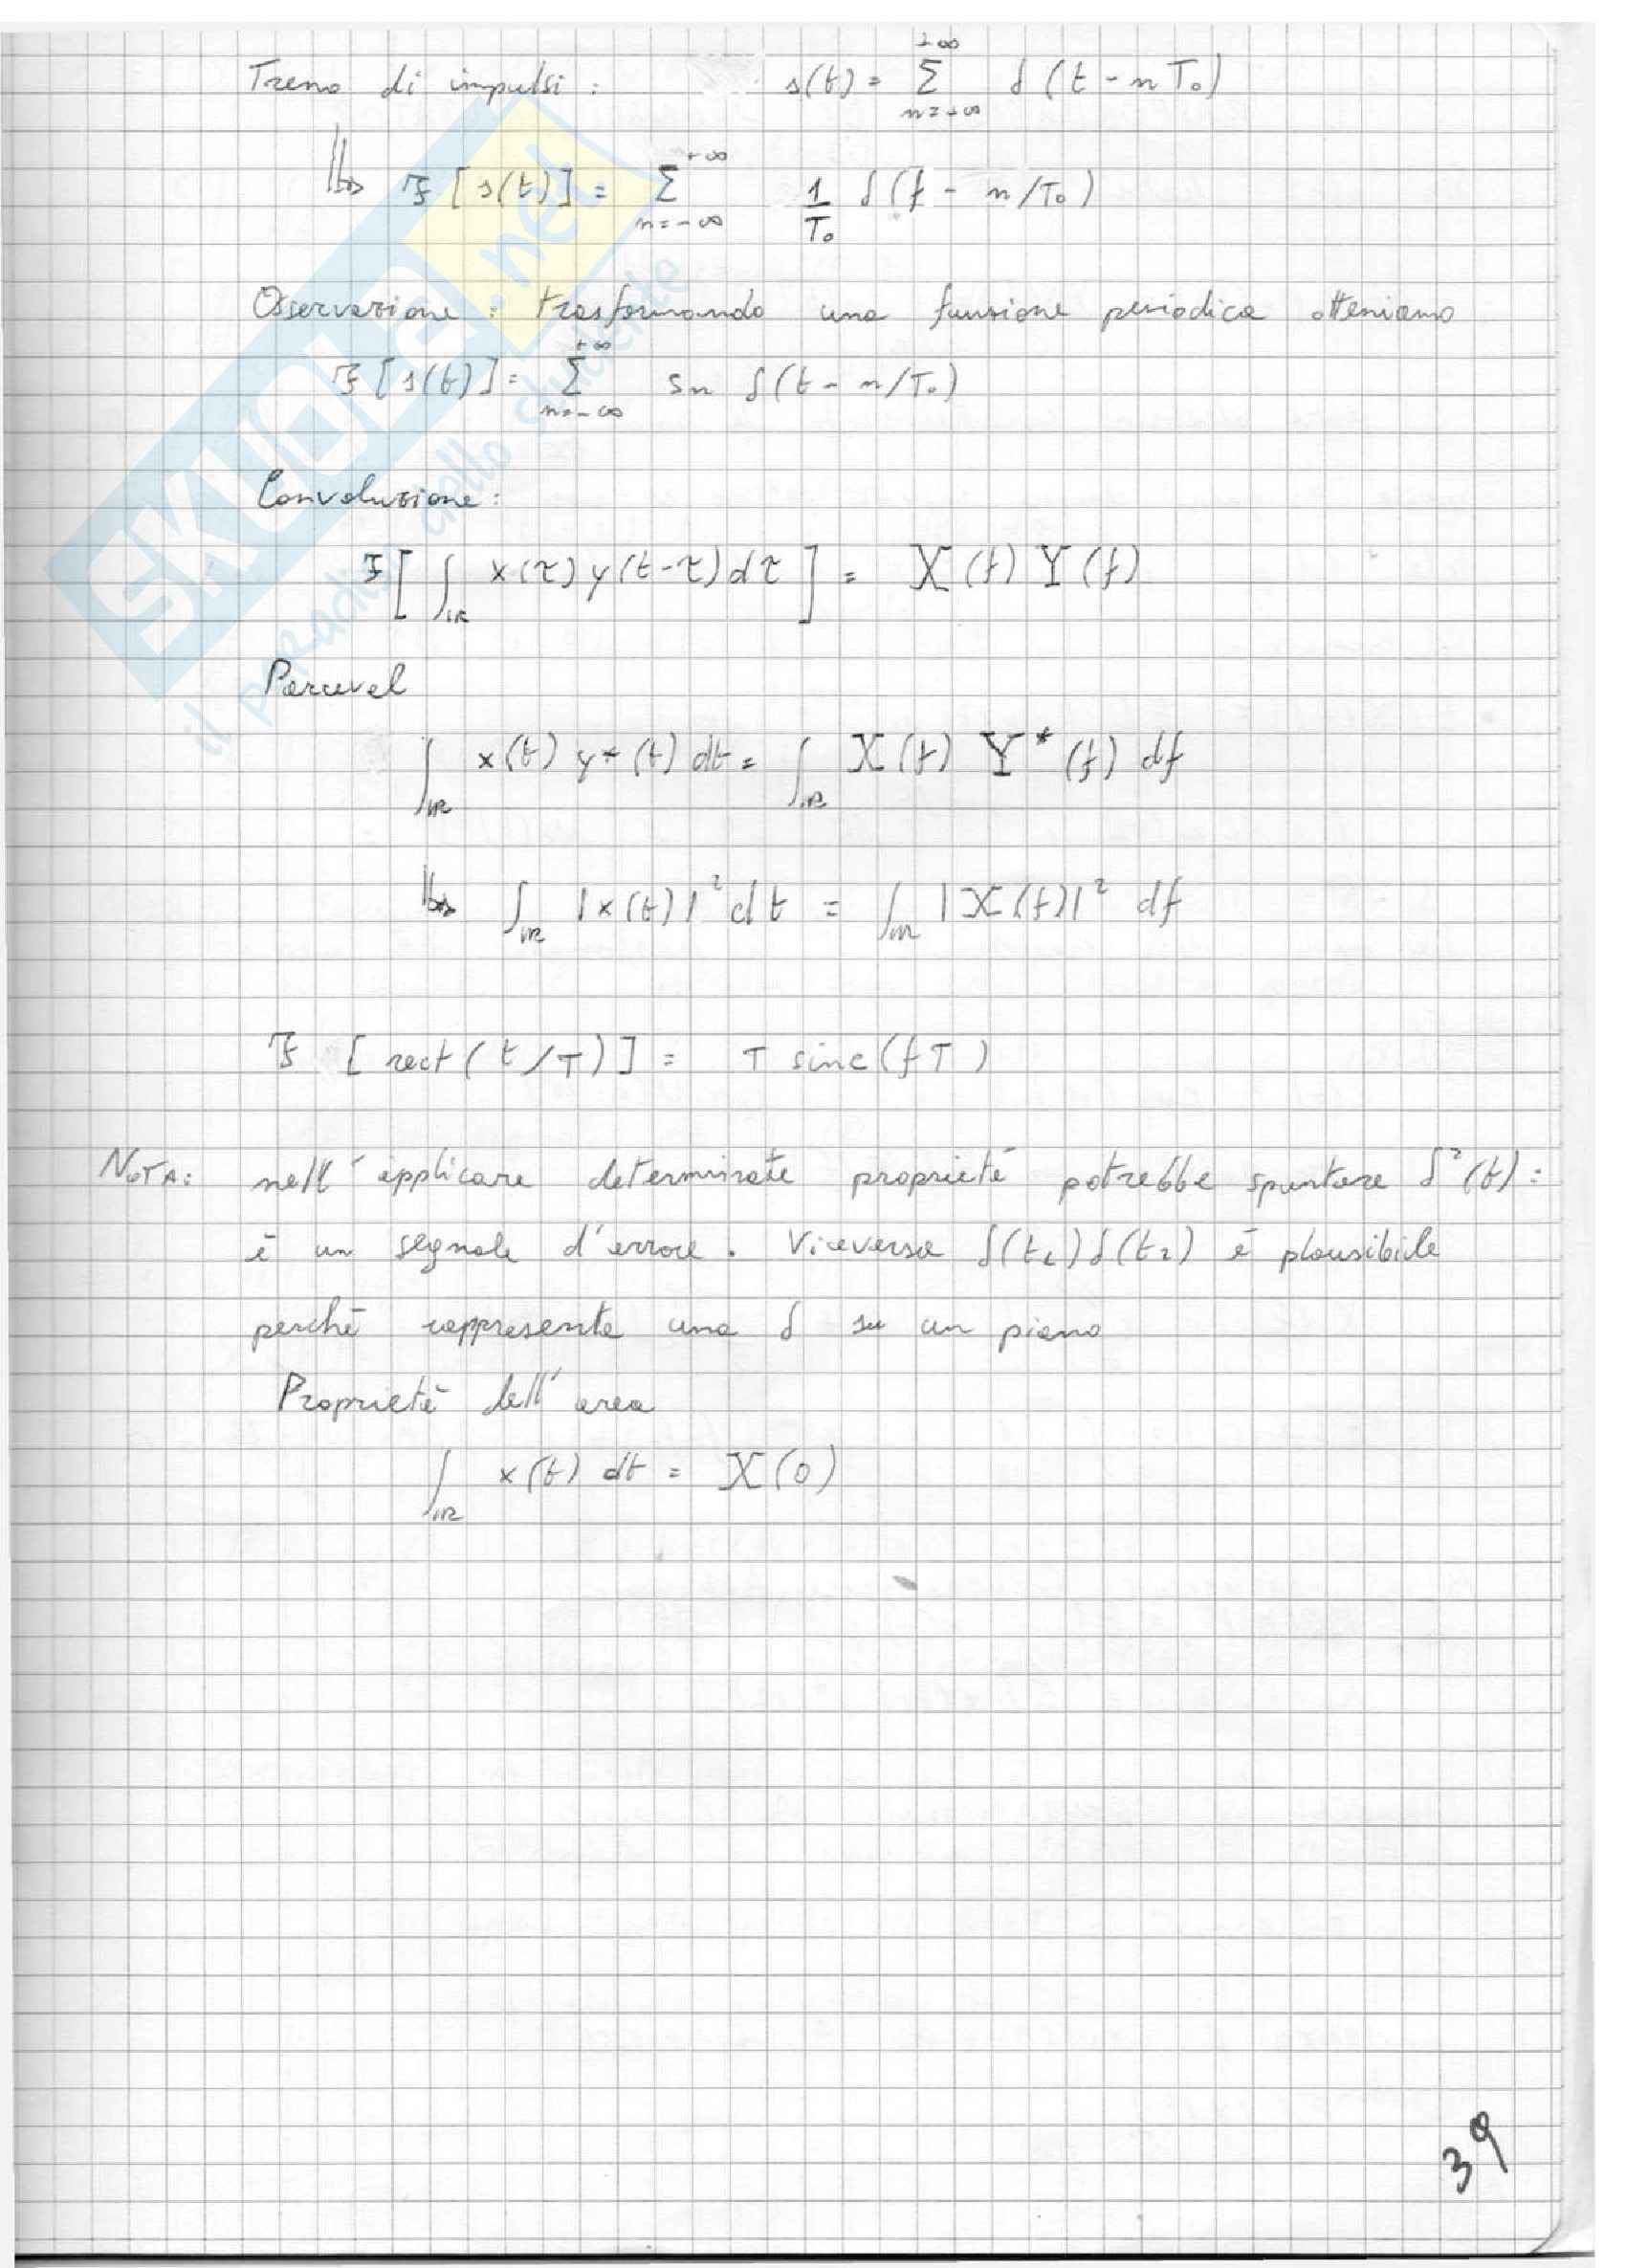 Treno di impulsi : s(t) = Σ_{n=-∞}^{+∞} δ(t - nT₀)
↳ F[s(t)] = Σ_{n=-∞}^{+∞} 1/T₀ δ(f - n/T₀)
Osservazione : trasformando una funzione periodica otteniamo
F[s(t)] = Σ_{n=-∞}^{+∞} Sn δ(t - n/T₀)
Convoluzione :
F[∫_ℝ x(τ) y(t-τ) dτ] = X(f) Y(f)
Parseval
∫_ℝ x(t) y*(t) dt = ∫_ℝ X(f) Y*(f) df
↳ ∫_ℝ |x(t)|² dt = ∫_ℝ |X(f)|² df
F [rect(t/T)] = T sinc(fT)
NOTA: nell'applicare determinate proprietà potrebbe spuntare δ²(t) :
è un segnale d'errore. Viceversa δ(t₁)δ(t₂) è plausibile
perché rappresenta una δ su un piano
Proprietà dell'area
∫_ℝ x(t) dt = X(0)
39
SKUOLA.net
il paradiso dello studente